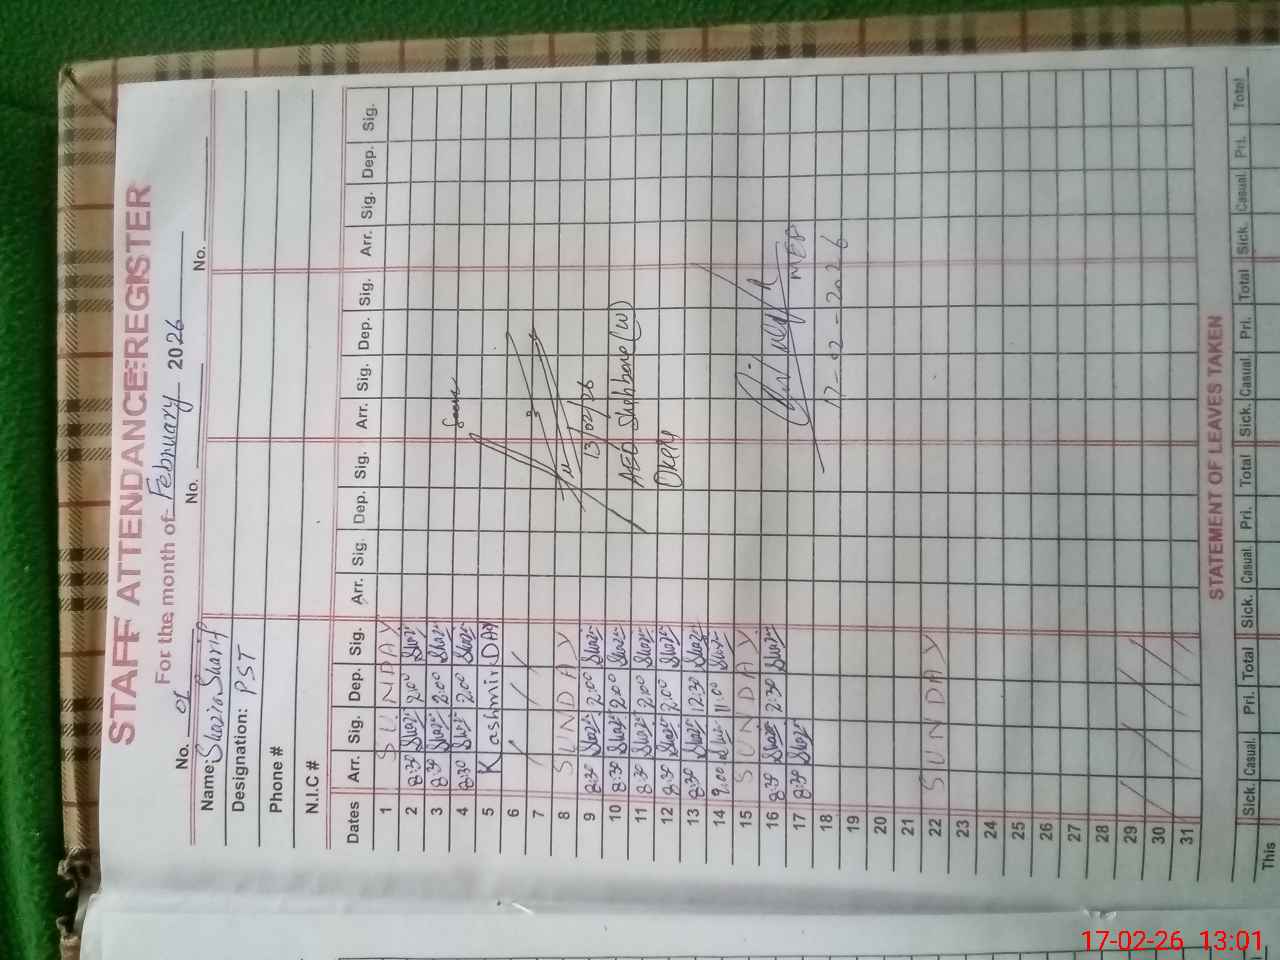 STAFF ATTENDANCE REGISTER
For the month of February 2026
No. 01 No. No. No.
Name: Shazia Sharif
Designation: PST
Phone #
N.I.C #
Dates Arr. Sig. Dep. Sig. Arr. Sig. Dep. Sig. Arr. Sig. Dep. Sig. Arr. Sig. Dep. Sig.
1 SUNDAY
2 8:30 2:00
3 8:30 2:00
4 8:30 2:00
5 Kashmir DAY
6
7
8 SUNDAY
9 8:30 2:00 13/02/26
10 8:30 2:00
11 8:30 2:00 AEO (W)
12 8:30 2:00
13 8:30 12:30
14 9:00 11:00
15 SUNDAY
16 8:30 2:30 MEA
17 8:30
18 17-02-2026
19
20
21
22 SUNDAY
23
24
25
26
27
28
29
30
31
STATEMENT OF LEAVES TAKEN
Sick. Casual. Pri. Total Sick. Casual. Pri. Total Sick. Casual. Pri. Total Sick. Casual. Pri. Total
This
17-02-26 13:01